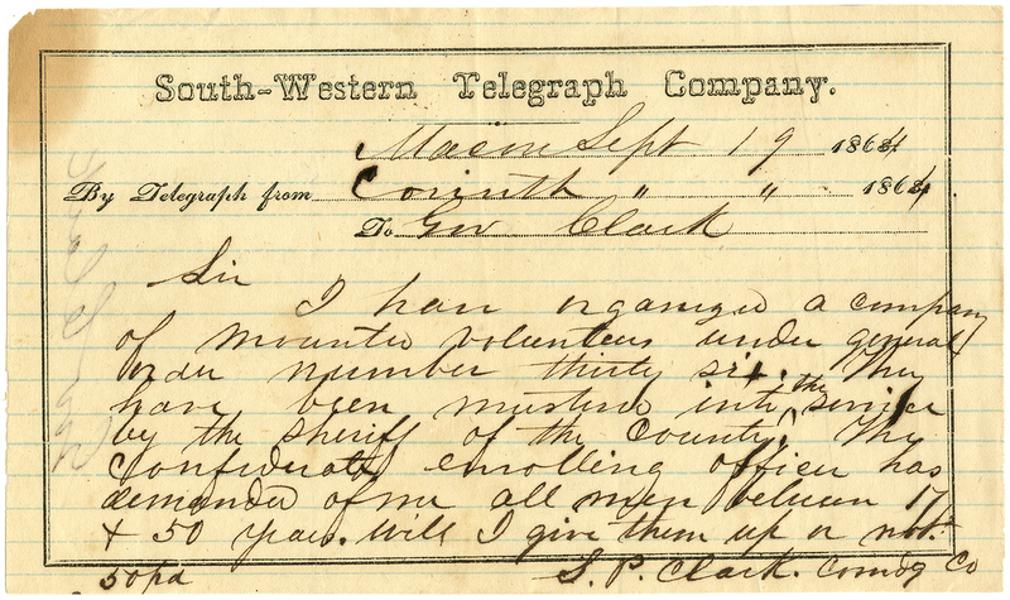 South-Western Telegraph Company.
Macon Sept 19 1864
By Telegraph from Corinth " " 1864
To Gov Clark
Sir
I have organized a company
of mounted volunteers under general
order number thirty six. They
have been mustered into the service
by the sheriff of the county. The
Confederate enrolling officer has
demanded of me all men between 17
& 50 years. Will I give them up or not.
50 pd S. P. Clark. Comdg Co